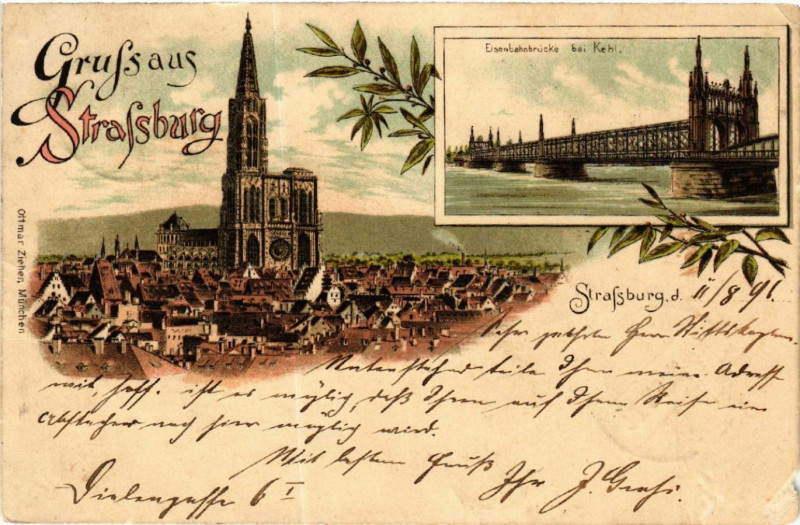 Gruſsaus
Straſsburg
Eisenbahnbrücke bei Kehl.
Ottmar Zieher, München
Straſsburg, d. 11/8 91.
Sehr geehrter Herr
Untenstehend teile Ihnen meine Adresse
mit, hoff. ist es möglich, daß Ihnen auf Ihrer Reise ein
Abstecher nach hier möglich wird.
Mit bestem Gruß
Ihr J.
Dielengasse 6 I